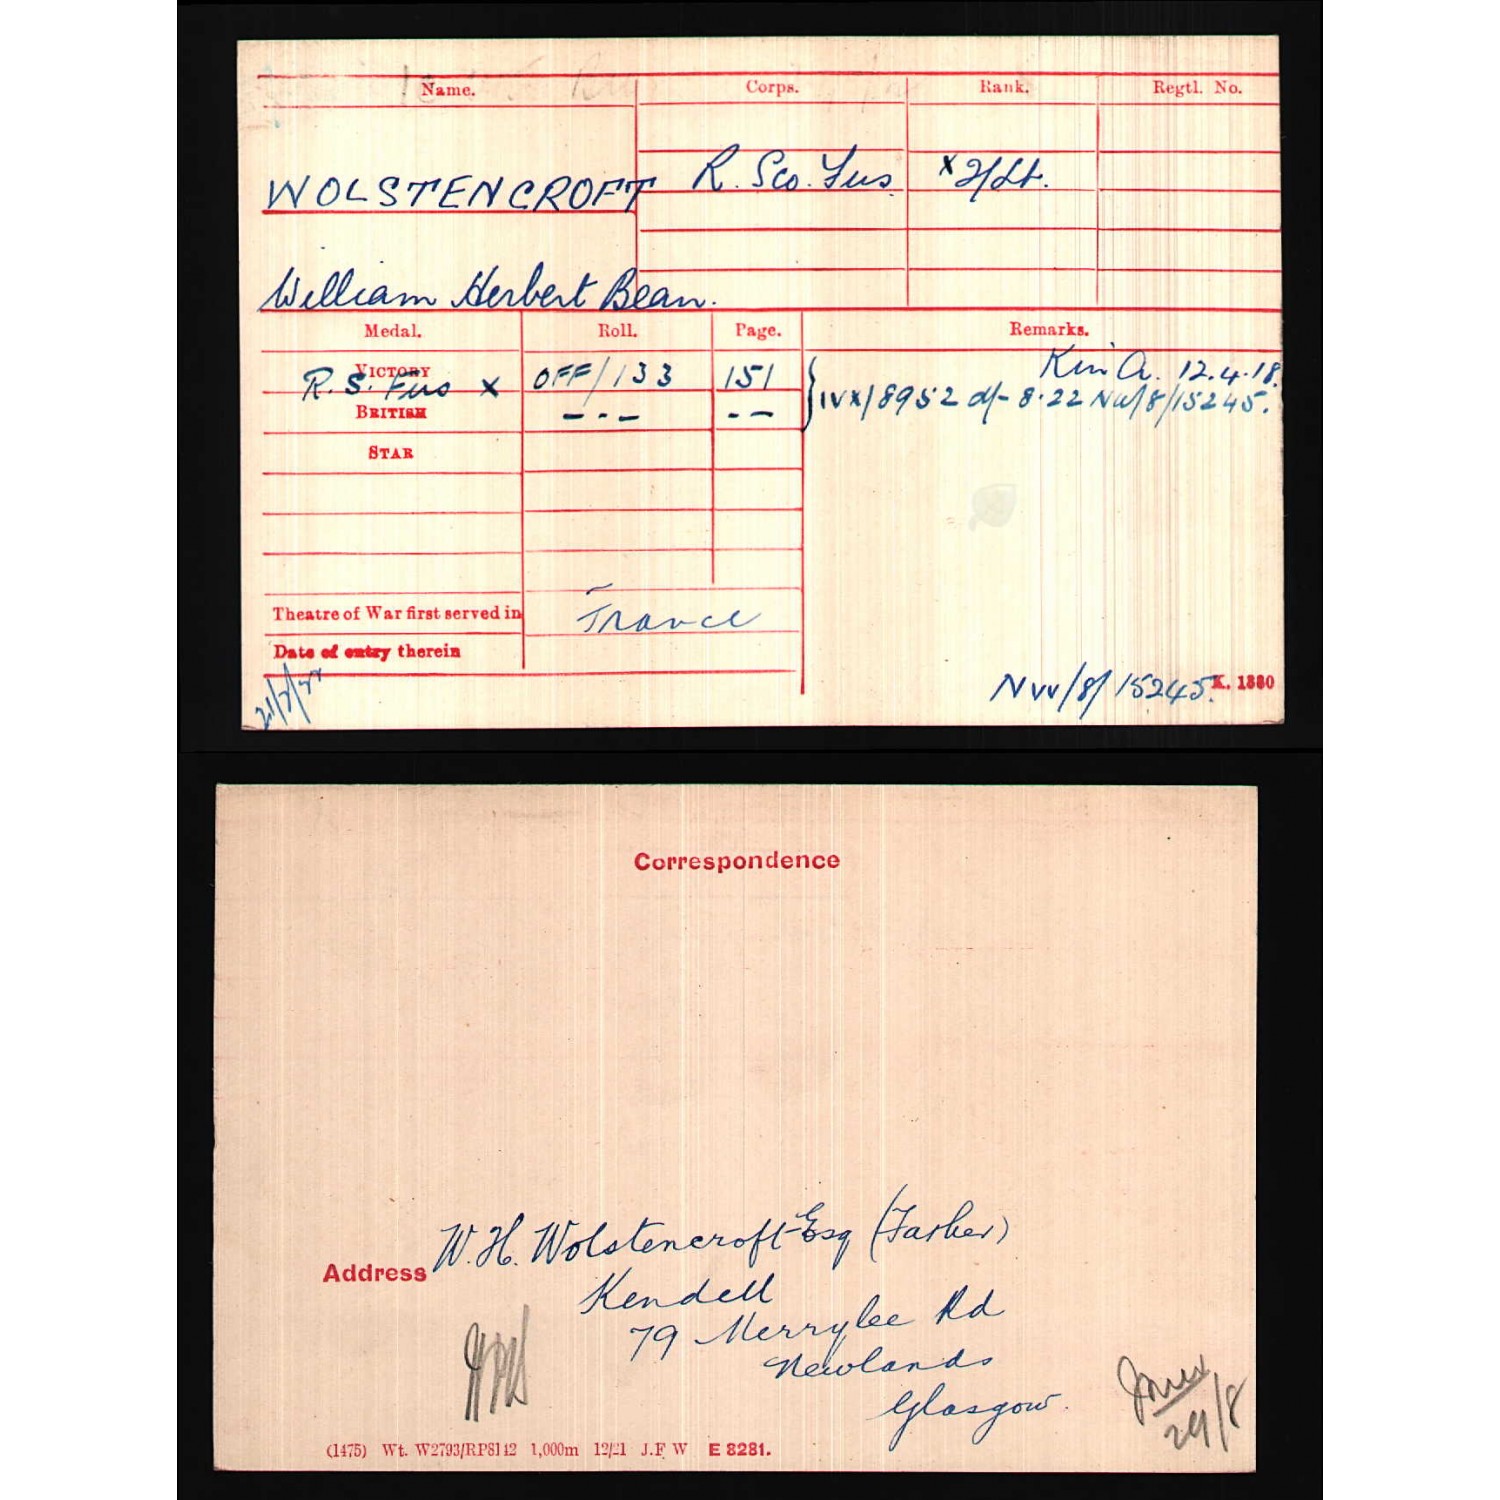 Name. Corps. Rank. Regtl. No.
WOLSTENCROFT R. Sco. Fus. x 2/Lt.
William Herbert Bean.
Medal. Roll. Page. Remarks.
Kin A. 12.4.18.
VICTORY
R. S. Fus x OFF/133 151 IVX/8952 d/- 8.22 NW/8/15245.
BRITISH — · — - -
STAR
Theatre of War first served in France
Date of entry therein
NW/8/15245. K. 1380
Correspondence
W. H. Wolstencroft Esq (Father)
Address
Kendell
79 Merrylee Rd
Newlands
Glasgow.
29/8
(1475) Wt. W2793/RP8142 1,000m 12/21 J.F W E 8281.